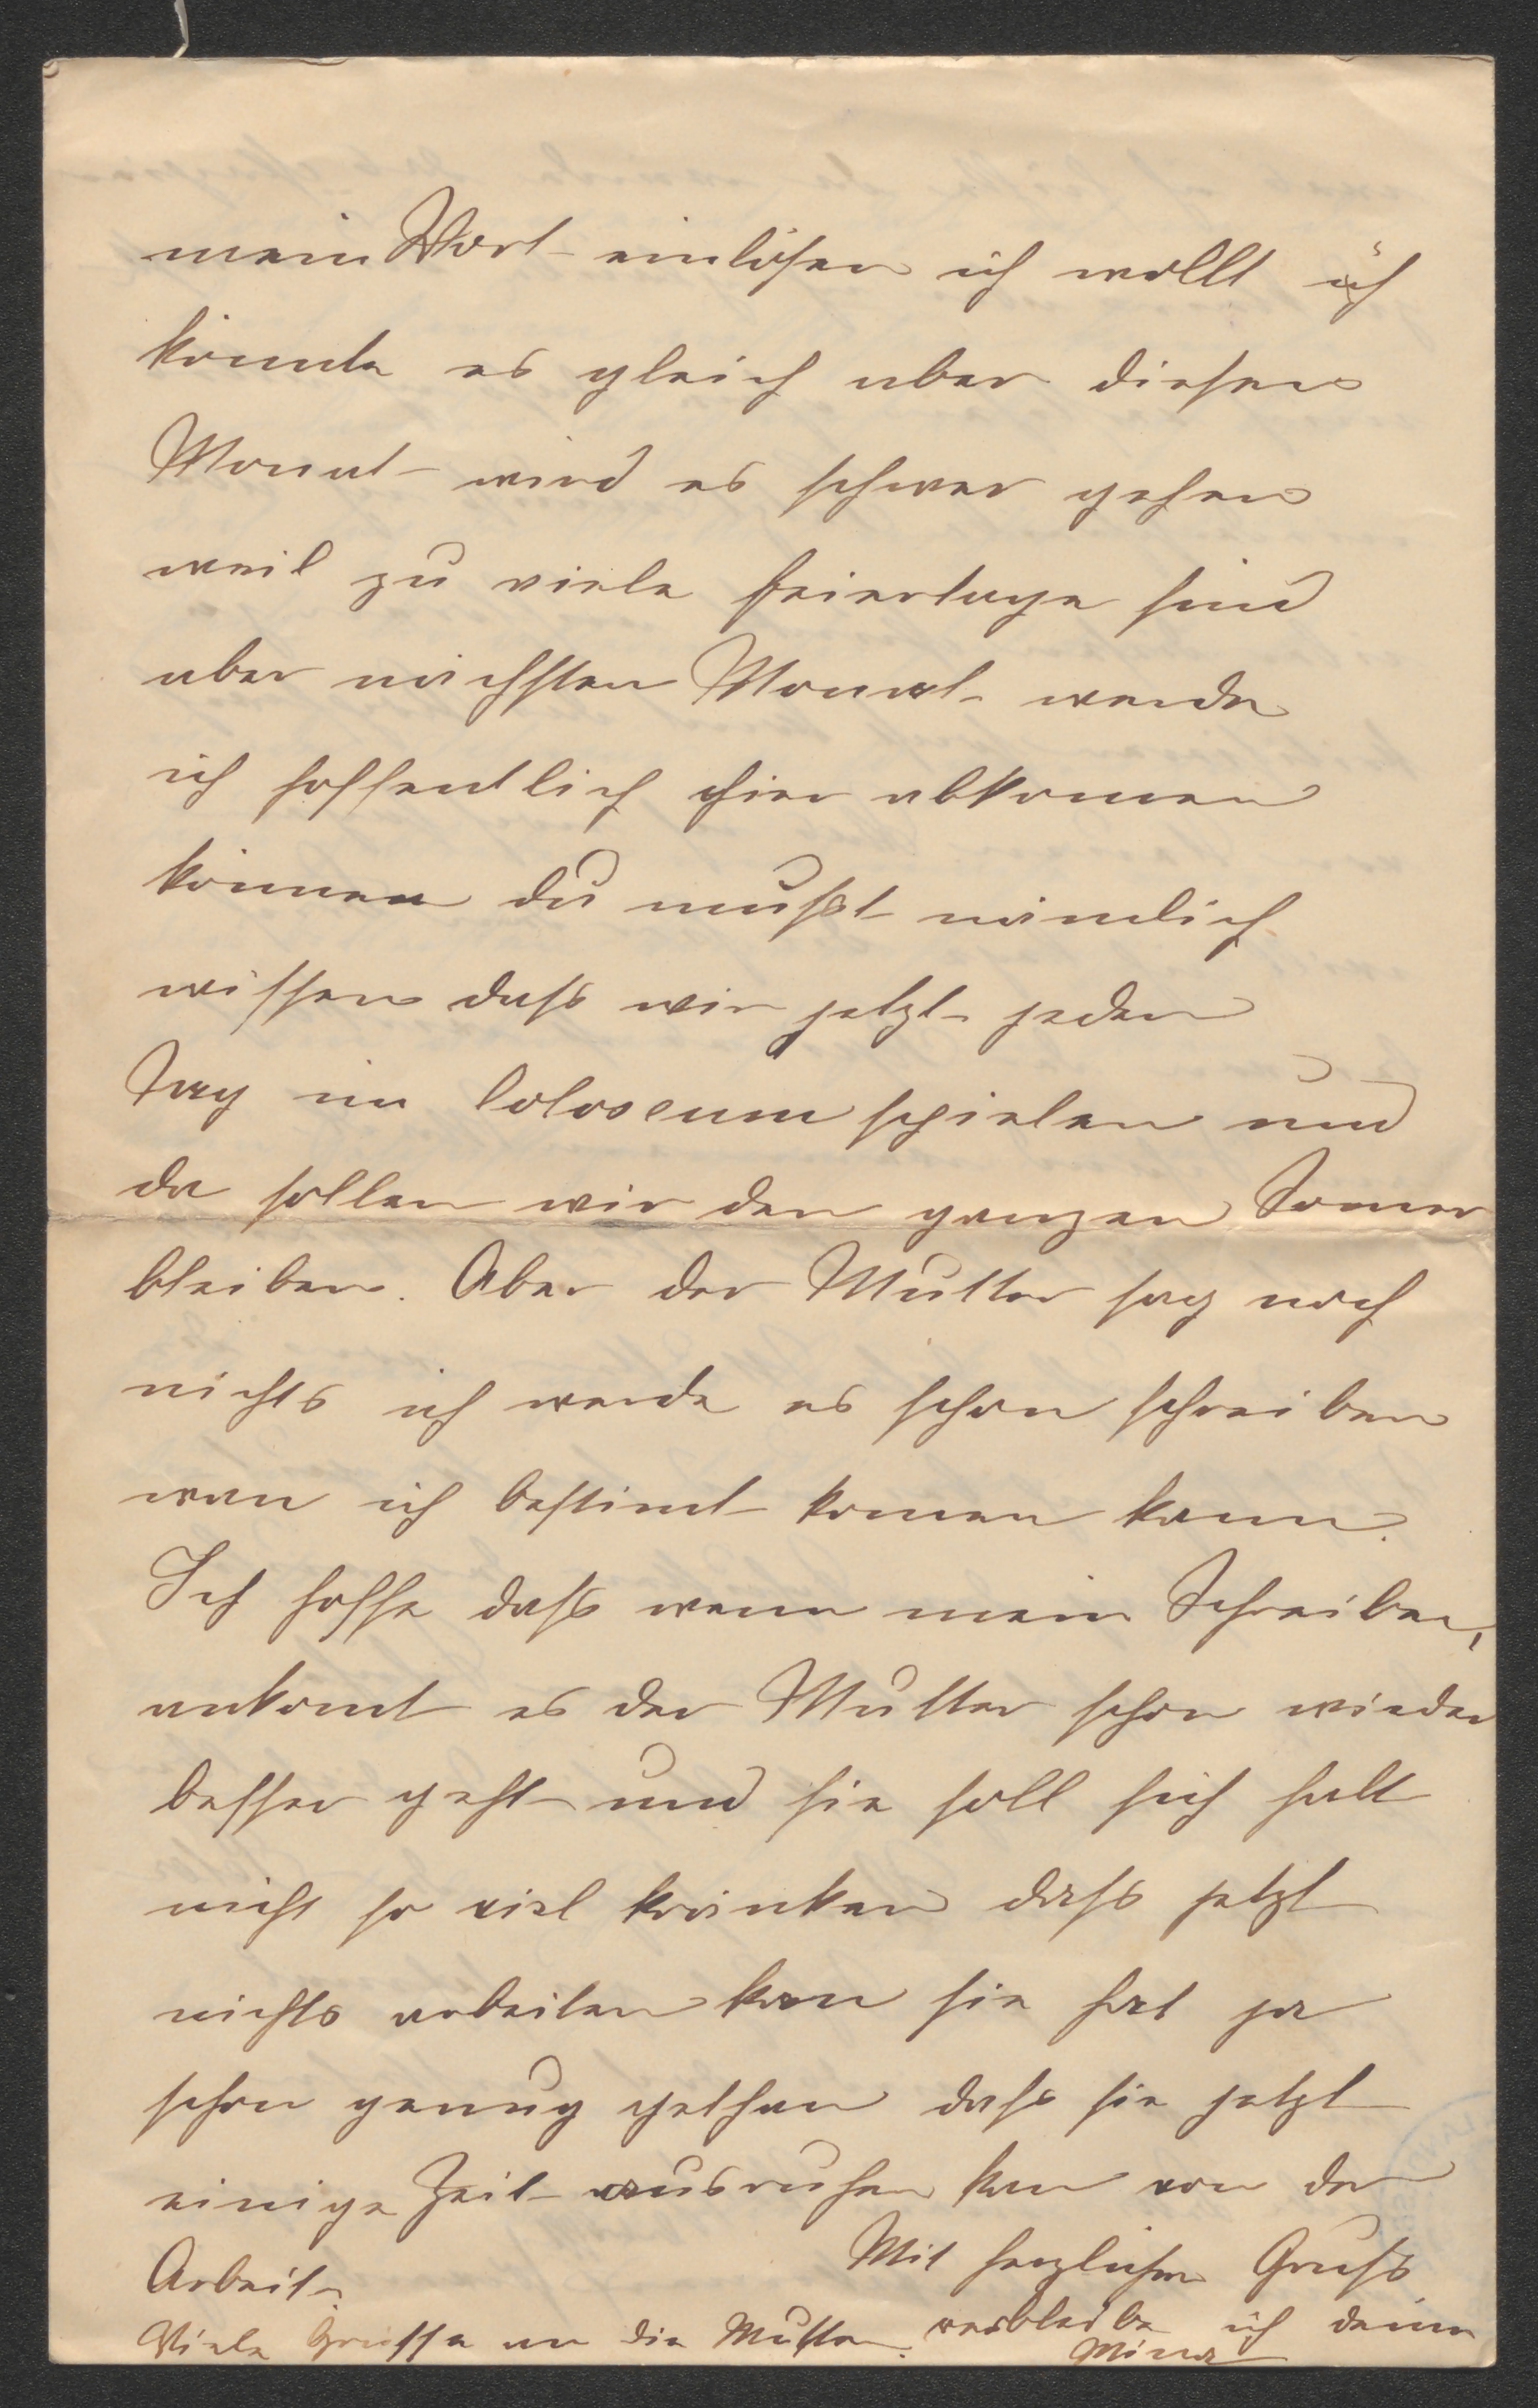 mein Wort einlösen ich wollt ich
könnte es gleich aber diesen
Monat wird es schwer gehen
weil zu viele Feiertage sind
aber nächsten Monat werde
ich hoffentlich hier abkomen
können du mußt nämlich
wissen daß wir jetzt jeden
Tag im Coloseum spielen und
da sollen wir den ganzen Somer
bleiben. Aber der Mutter sag noch
nichts ich werde es schon schreiben
wan ich bestimt komen kann.
Ich hoffe daß wenn mein Schreiben,
ankomt es der Mutter schon wieder
besser geht und sie soll sich halt
nicht so viel kränken daß jetzt
nichts arbeiten kan sie hat ja
schon genug gethan daß sie jetzt
einige Zeit ausruhen kan von der
Arbeit.
Mit herzlichen Gruß
verbleibe ich deine
Viele Grüsse an die Mutter.
Mina